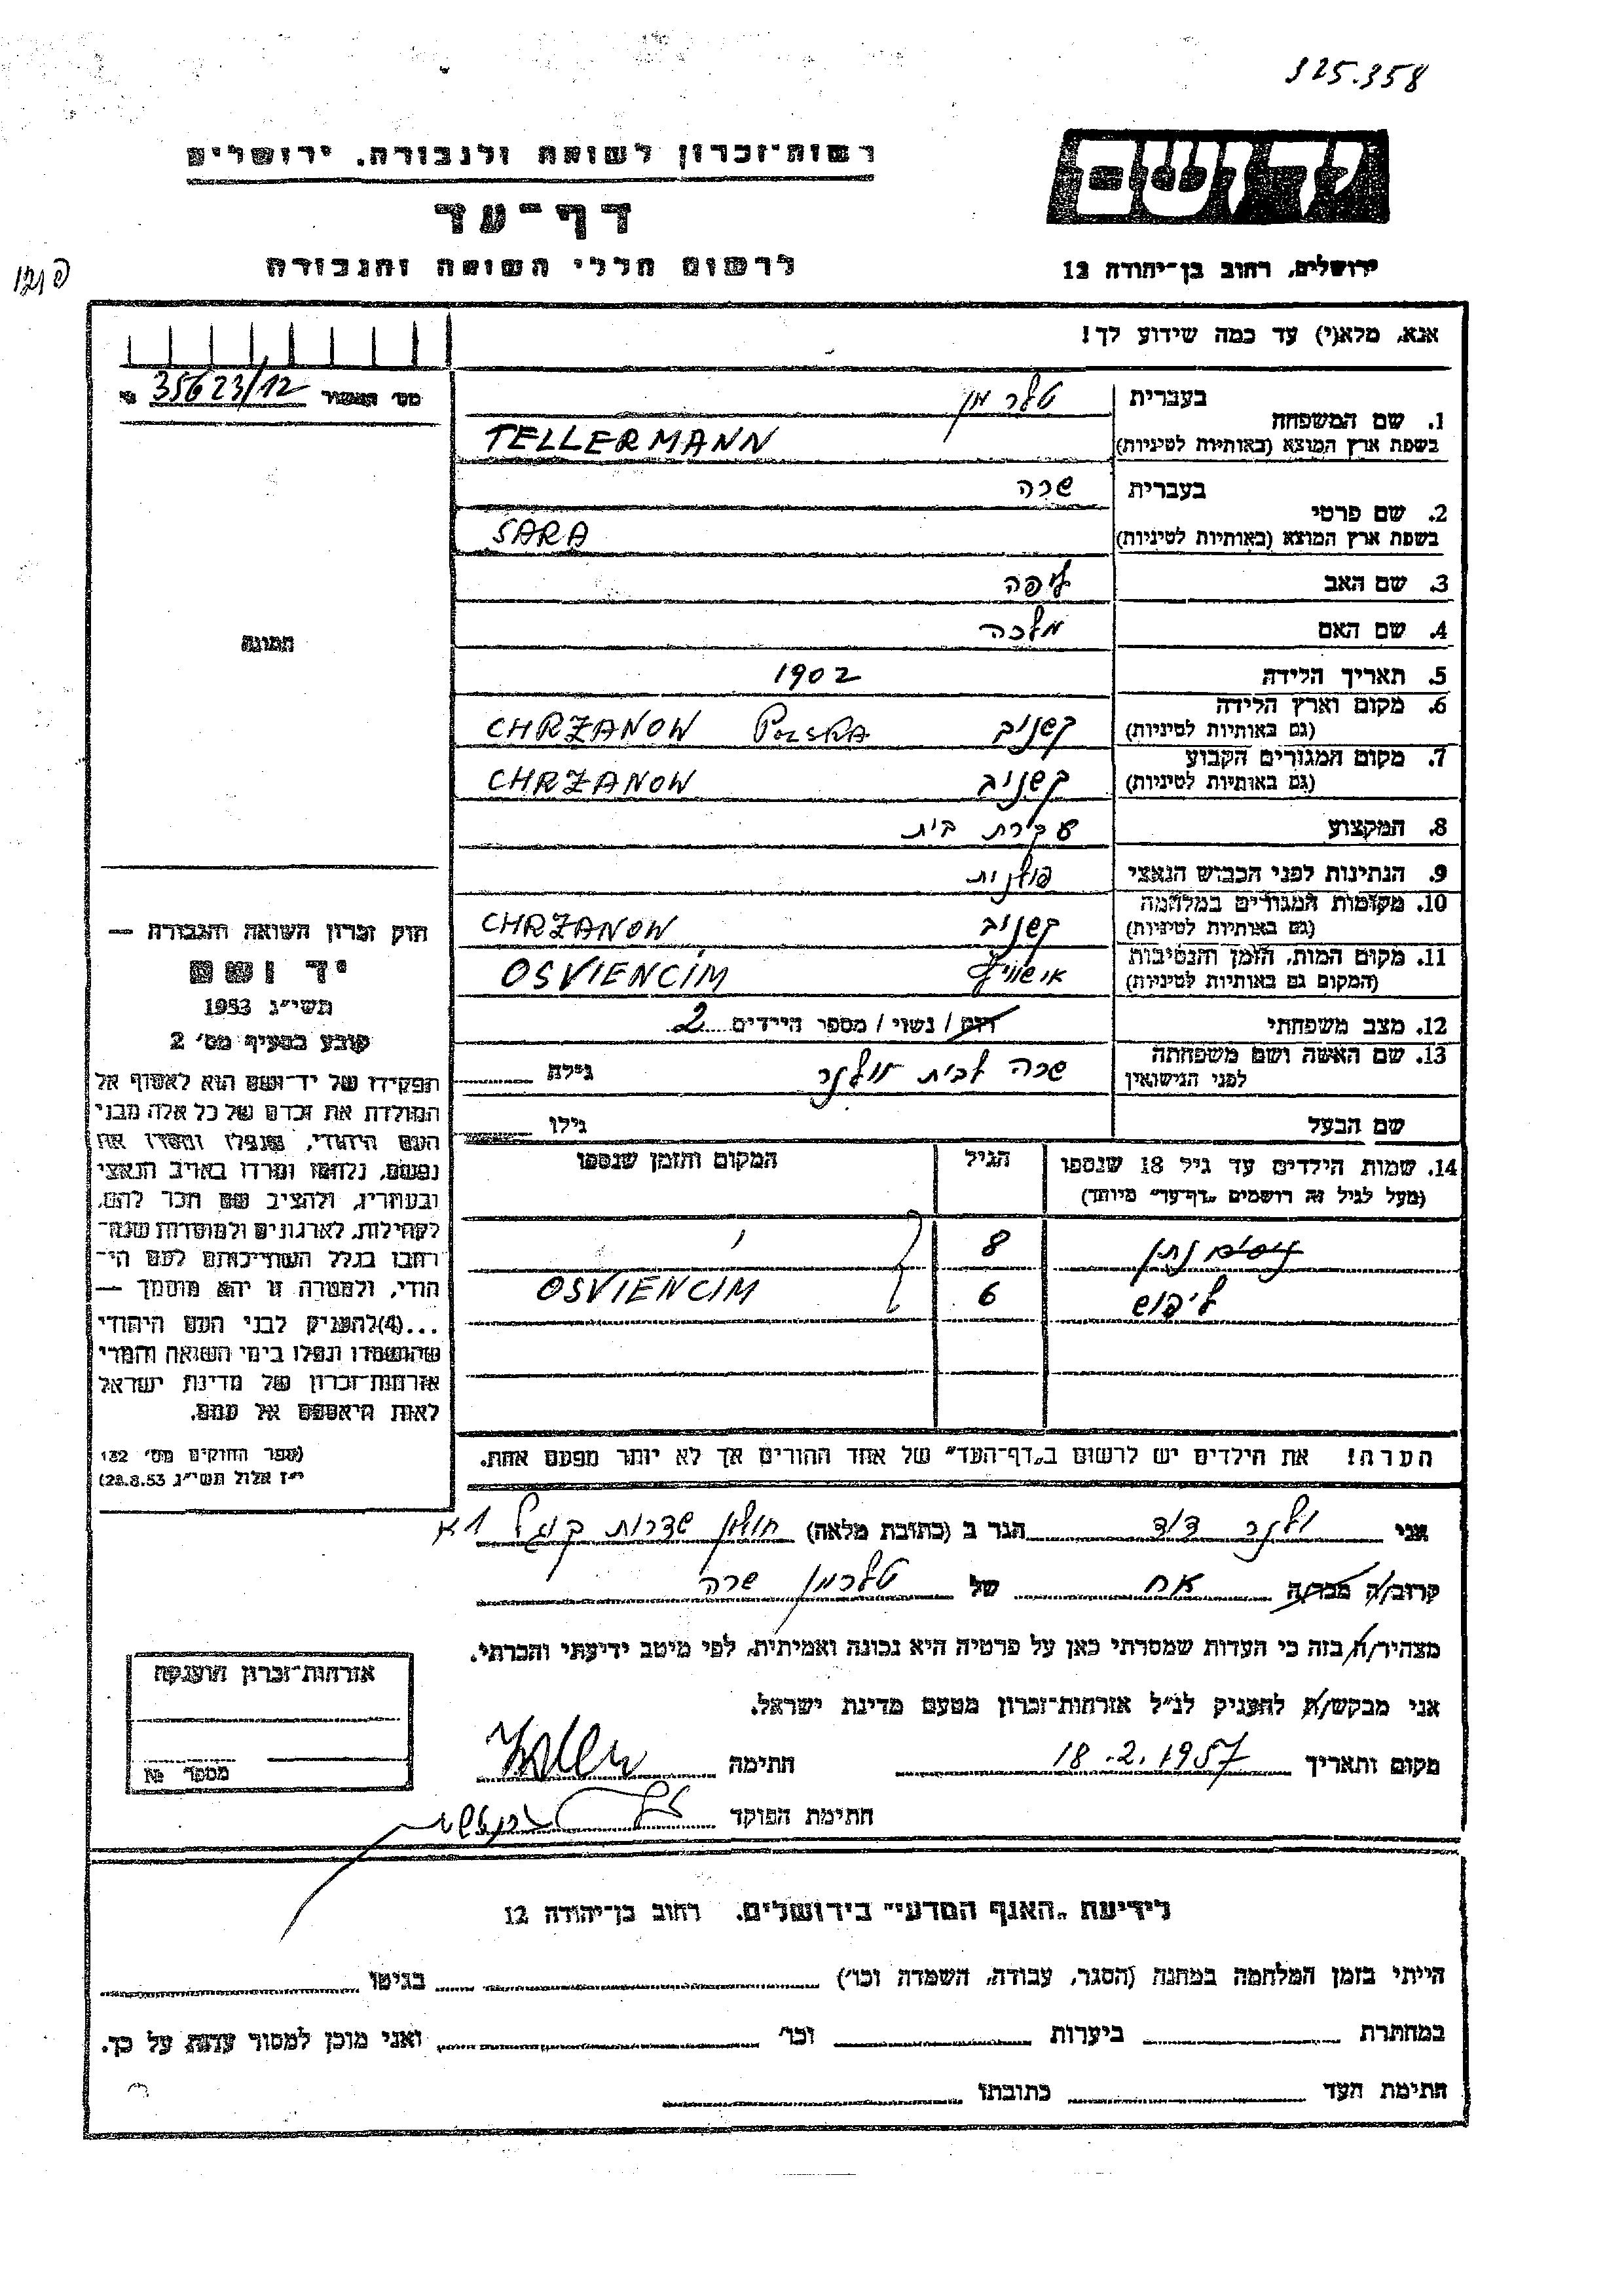 325.358
רשות-זכרון לשואה ולגבורה. ירושלים
יד ושם
דף-עד
לרשום חללי השואה והגבורה
ירושלים, רחוב בן-יהודה 12
אנא, מלא(י) עד כמה שידוע לך!
מס' האשור 35623/12
1. שם המשפחה
בעברית טלרמן
בשפת ארץ המוצא (באותיות לטיניות) TELLERMANN
2. שם פרטי
בעברית שרה
בשפת ארץ המוצא (באותיות לטיניות) SARA
3. שם האב ליפה
4. שם האם מלכה
5. תאריך הלידה 1902
6. מקום וארץ הלידה
(גם באותיות לטיניות) קשנוב CHRZANOW Polska
7. מקום המגורים הקבוע
(גם באותיות לטיניות) קשנוב CHRZANOW
8. המקצוע עקרת בית
9. הנתינות לפני הכבוש הנאצי פולנית
10. מקומות המגורים במלחמה
(גם באותיות לטיניות) קשנוב CHRZANOW
11. מקום המות, הזמן והנסיבות
(המקום גם באותיות לטיניות) אושויץ OSVIENCIM
12. מצב משפחתי רווק / נשוי / מספר הילדים 2
13. שם האשה ושם משפחתה
לפני הנישואין שרה לבית וולנר גילה
שם הבעל גילו
14. שמות הילדים עד גיל 18 שנספו
(מעל לגיל זה רושמים "דף-עד" מיוחד)
הגיל
המקום והזמן שנספו
8
ליפוש 6 OSVIENCIM
הערה! את הילדים יש לרשום ב"דף-העד" של אחד ההורים אך לא יותר מפעם אחת.
תמונה
חוק זכרון השואה והגבורה —
יד ושם
תשי"ג 1953
קובע בסעיף מס' 2
תפקידו של יד-ושם הוא לאסוף אל
המולדת את זכרם של כל אלה מבני
העם היהודי, שנפלו ומסרו את
נפשם, נלחמו ומרדו באויב הנאצי
ובעוזריו, ולהציב שם וזכר להם,
לקהילות, לארגונים ולמוסדות שנח-
רבו בגלל השתייכותם לעם הי-
הודי, ולמטרה זו יהא מוסמך —
...(4)להעניק לבני העם היהודי
שהושמדו ונפלו בימי השואה והמרי
אזרחות-זכרון של מדינת ישראל
לאות היאספם אל עמם.
(ספר החוקים מס' 132
י"ז אלול תשי"ג 28.8.53)
אני ולנר דוד הגר ב (כתובת מלאה) חולון שדרות קוגל 1א
קרוב/ה מכר/ה אח של טלרמן שרה
מצהיר/ה בזה כי העדות שמסרתי כאן על פרטיה היא נכונה ואמיתית, לפי מיטב ידיעתי והכרתי.
אני מבקש/ת להעניק לנ"ל אזרחות-זכרון מטעם מדינת ישראל.
מקום ותאריך 18.2.1957 חתימה
חתימת הפוקד
אזרחות-זכרון הוענקה
מספר №
לידיעת "האגף המדעי" בירושלים. רחוב בן-יהודה 12
הייתי בזמן המלחמה במחנה (הסגר, עבודה, השמדה וכו') בגיטו
במחתרת ביערות וכו' ואני מוכן למסור עדות על כך.
חתימת העד כתובתו